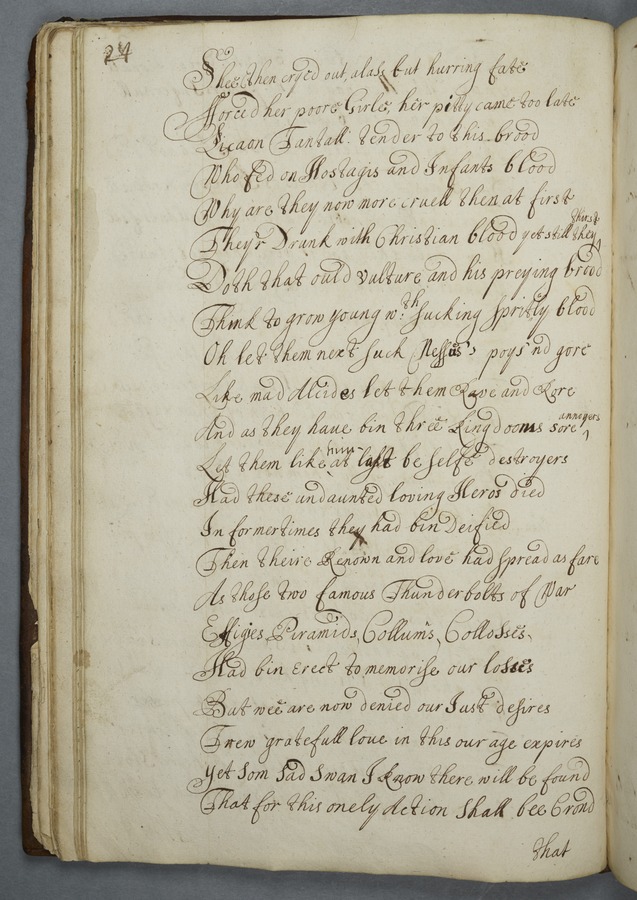 24
Shee then cryed out, alas, but hurring fate
Forced her poore Girle, her pitty came too late
Licaon Tantall. tender to this brood
Who fed on Hostagis and Infants blood
Why are they now more cruell then at first
They'r Drunk with Christian blood yet still they thirst
Doth that ould vulture and his preying brood
Think to grow young wth sucking spritly blood
Oh let them next suck Nessus's poys'nd gore
Like mad Alcides let them Rave and Rore
And as they have bin three Kingdooms sore annoyers
Let them like him at last be selfe destroyers
Had these andaunted loving Heros died
In former times they had bin Deified
Then theire Renown and love had spread as fare
As those two famous Thunderbolts of War
Effigies Piramids, Collums, Collosses
Had bin erect to memorise our losses
But wee are now denied our Just desires
Trew gratefull love in this our age expires
Yet som sad swan I know there will be found
That for this onely Action shall bee Crond
that